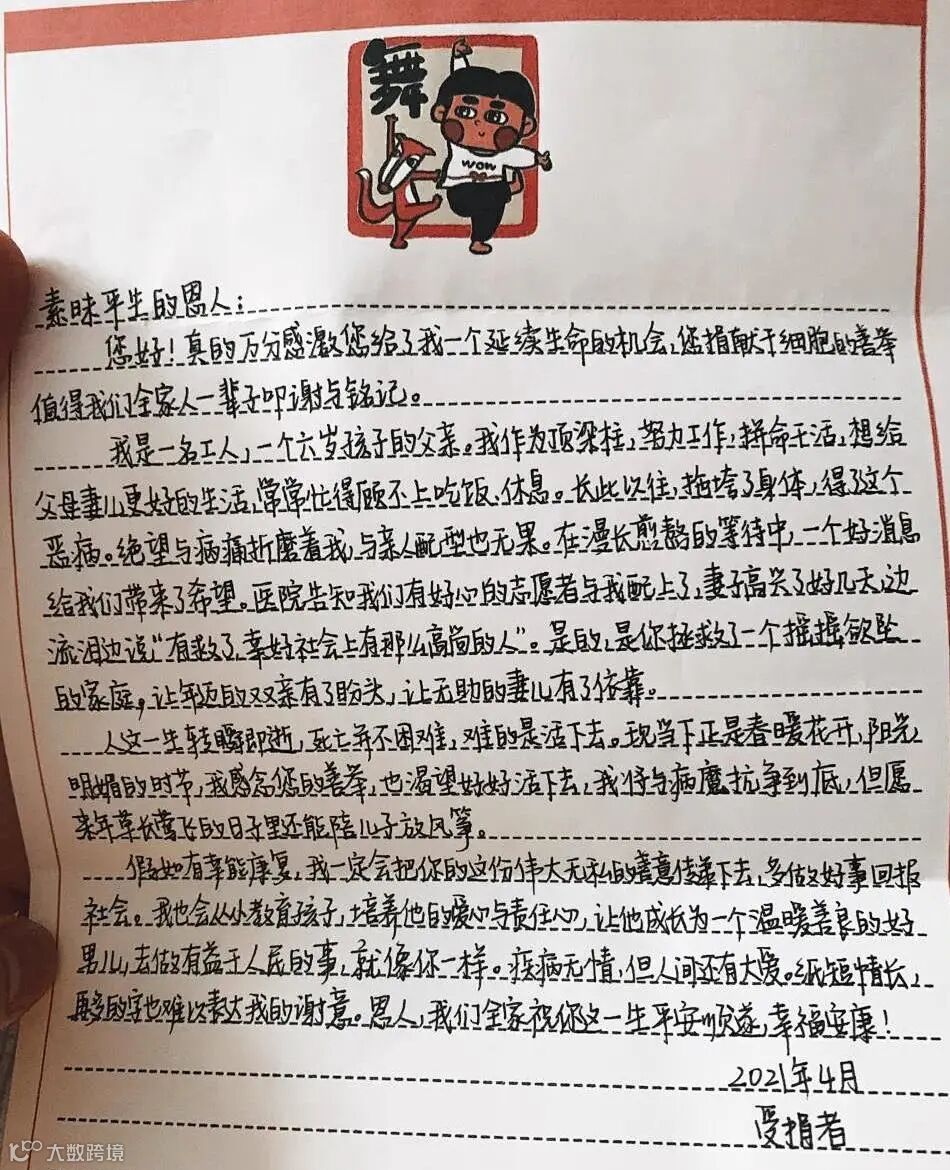 舞
WOW
素昧平生的恩人：
您好！真的万分感激您给了我一个延续生命的机会，您捐献干细胞的善举
值得我们全家人一辈子叩谢与铭记。
我是一名工人，一个六岁孩子的父亲。我作为顶梁柱，努力工作，拼命干活，想给
父母妻儿更好的生活，常常忙得顾不上吃饭、休息。长此以往，拖垮了身体，得了这个
恶病。绝望与病痛折磨着我，与亲人配型也无果。在漫长煎熬的等待中，一个好消息
给我们带来了希望。医院告知我们有好心的志愿者与我配上了，妻子高兴了好几天，边
流泪边说“有救了，幸好社会上有那么高尚的人”。是的，是你拯救了一个摇摇欲坠
的家庭，让年迈的双亲有了盼头，让无助的妻儿有了依靠。
人这一生转瞬即逝，死亡并不困难，难的是活下去。现当下正是春暖花开，阳光
明媚的时节，我感念您的善举，也渴望好好活下去，我将与病魔抗争到底，但愿
来年草长莺飞的日子里还能陪儿子放风筝。
假如有幸能康复，我一定会把你的这份伟大无私的善意传递下去，多做好事回报
社会。我也会从小教育孩子，培养他的爱心与责任心，让他成长为一个温暖善良的好
男儿，去做有益于人民的事，就像你一样。疾病无情，但人间还有大爱。纸短情长，
再多的字也难以表达我的谢意。恩人，我们全家祝你这一生平安顺遂，幸福安康！
2021年4月
受捐者
大数跨境